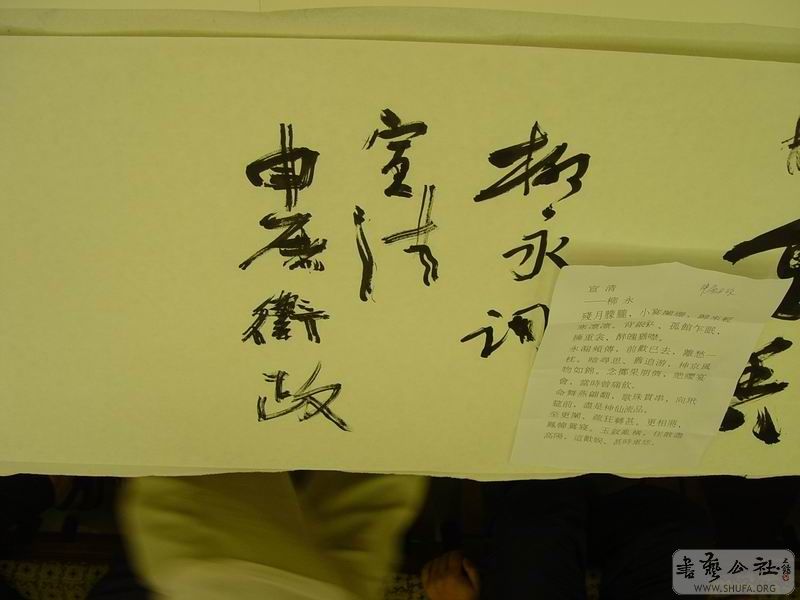 柳永词
宣清
宣清
——柳永
殘月朦朧、小宴闌珊、歸來輕
寒凜凜。背銀釭、孤館乍眠、
擁重衾、醉魄猶噤。
永漏頻傳、前歡已去、離愁一
枕。暗尋思、舊追游、神京風
物如錦。念擲果朋儕、絕纓宴
會、當時曾痛飲。
命舞燕翩翻、歌珠貫串、向玳
筵前、盡是神仙流品、
至更闌、疏狂轉甚。更相將、
鳳幃鴛寢。玉釵亂橫、任散盡
高陽、這歡娛、甚時重恁。
書藝公社
WWW.SHUFA.ORG